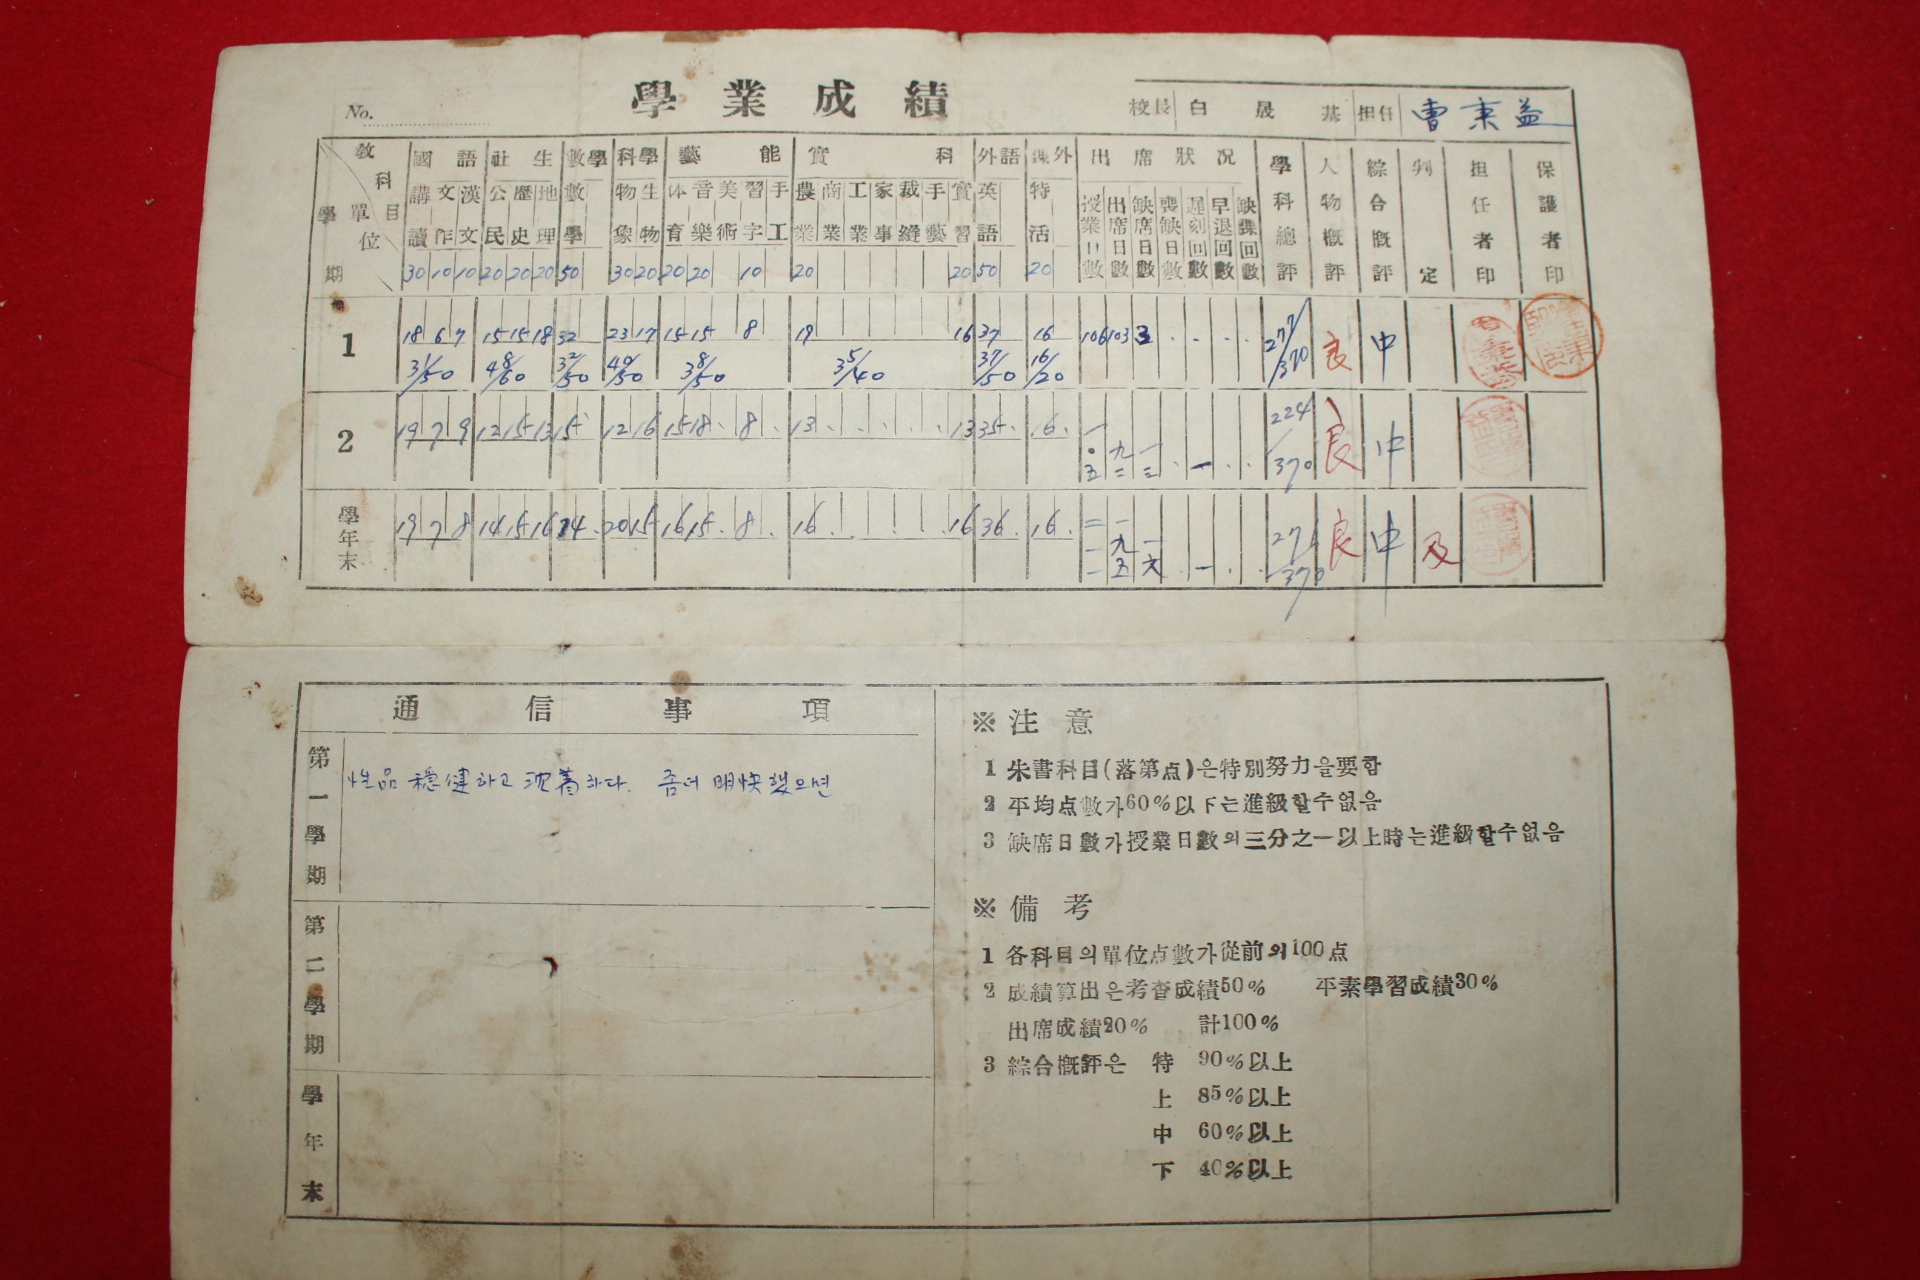 No.
學業成績
校長 白晟基 担任 曹秉益
敎科目 單位 學期
國語 社生 數學 科學 藝能 實科 外語 課外 出席狀況 學科總評 人物槪評 綜合槪評 判定 担任者印 保護者印
講讀 文作 漢文 公民 歷史 地理 數學 物象 生物 体育 音樂 美術 習字 手工 農業 商業 工業 家事 裁縫 手藝 實習 英語 特活 授業日數 出席日數 缺席日數 喪缺日數 遲刻回數 早退回數 缺課回數
30 10 10 20 20 20 50 30 20 20 20 10 20 20 50 20
1 18 6 7 15 15 18 32 23 17 15 15 8 19 16 37 16 106 103 3 277/370 良 中
31/50 48/60 32/50 40/50 38/50 35/40 37/50 16/20
2 19 7 9 12 15 13 15 12 16 15 18 8 13 13 35 16 一〇五 九二 一三 一 224/370 良 中
學年末 19 7 8 14 15 16 24 20 15 16 15 8 16 16 36 16 二一一 一九五 一六 一 271/370 良 中 及
通信事項
第一學期 性品 穩健하고 沈着하다. 좀더 明快했으면
第二學期
學年末
※ 注意
1 朱書科目(落第点)은特別努力을要함
2 平均点數가60%以下는進級할수없음
3 缺席日數가授業日數의三分之一以上時는進級할수없음
※ 備考
1 各科目의單位点數가從前의100点
2 成績算出은考査成績50% 平素學習成績30%
出席成績20% 計100%
3 綜合槪評은 特 90%以上
上 85%以上
中 60%以上
下 40%以上